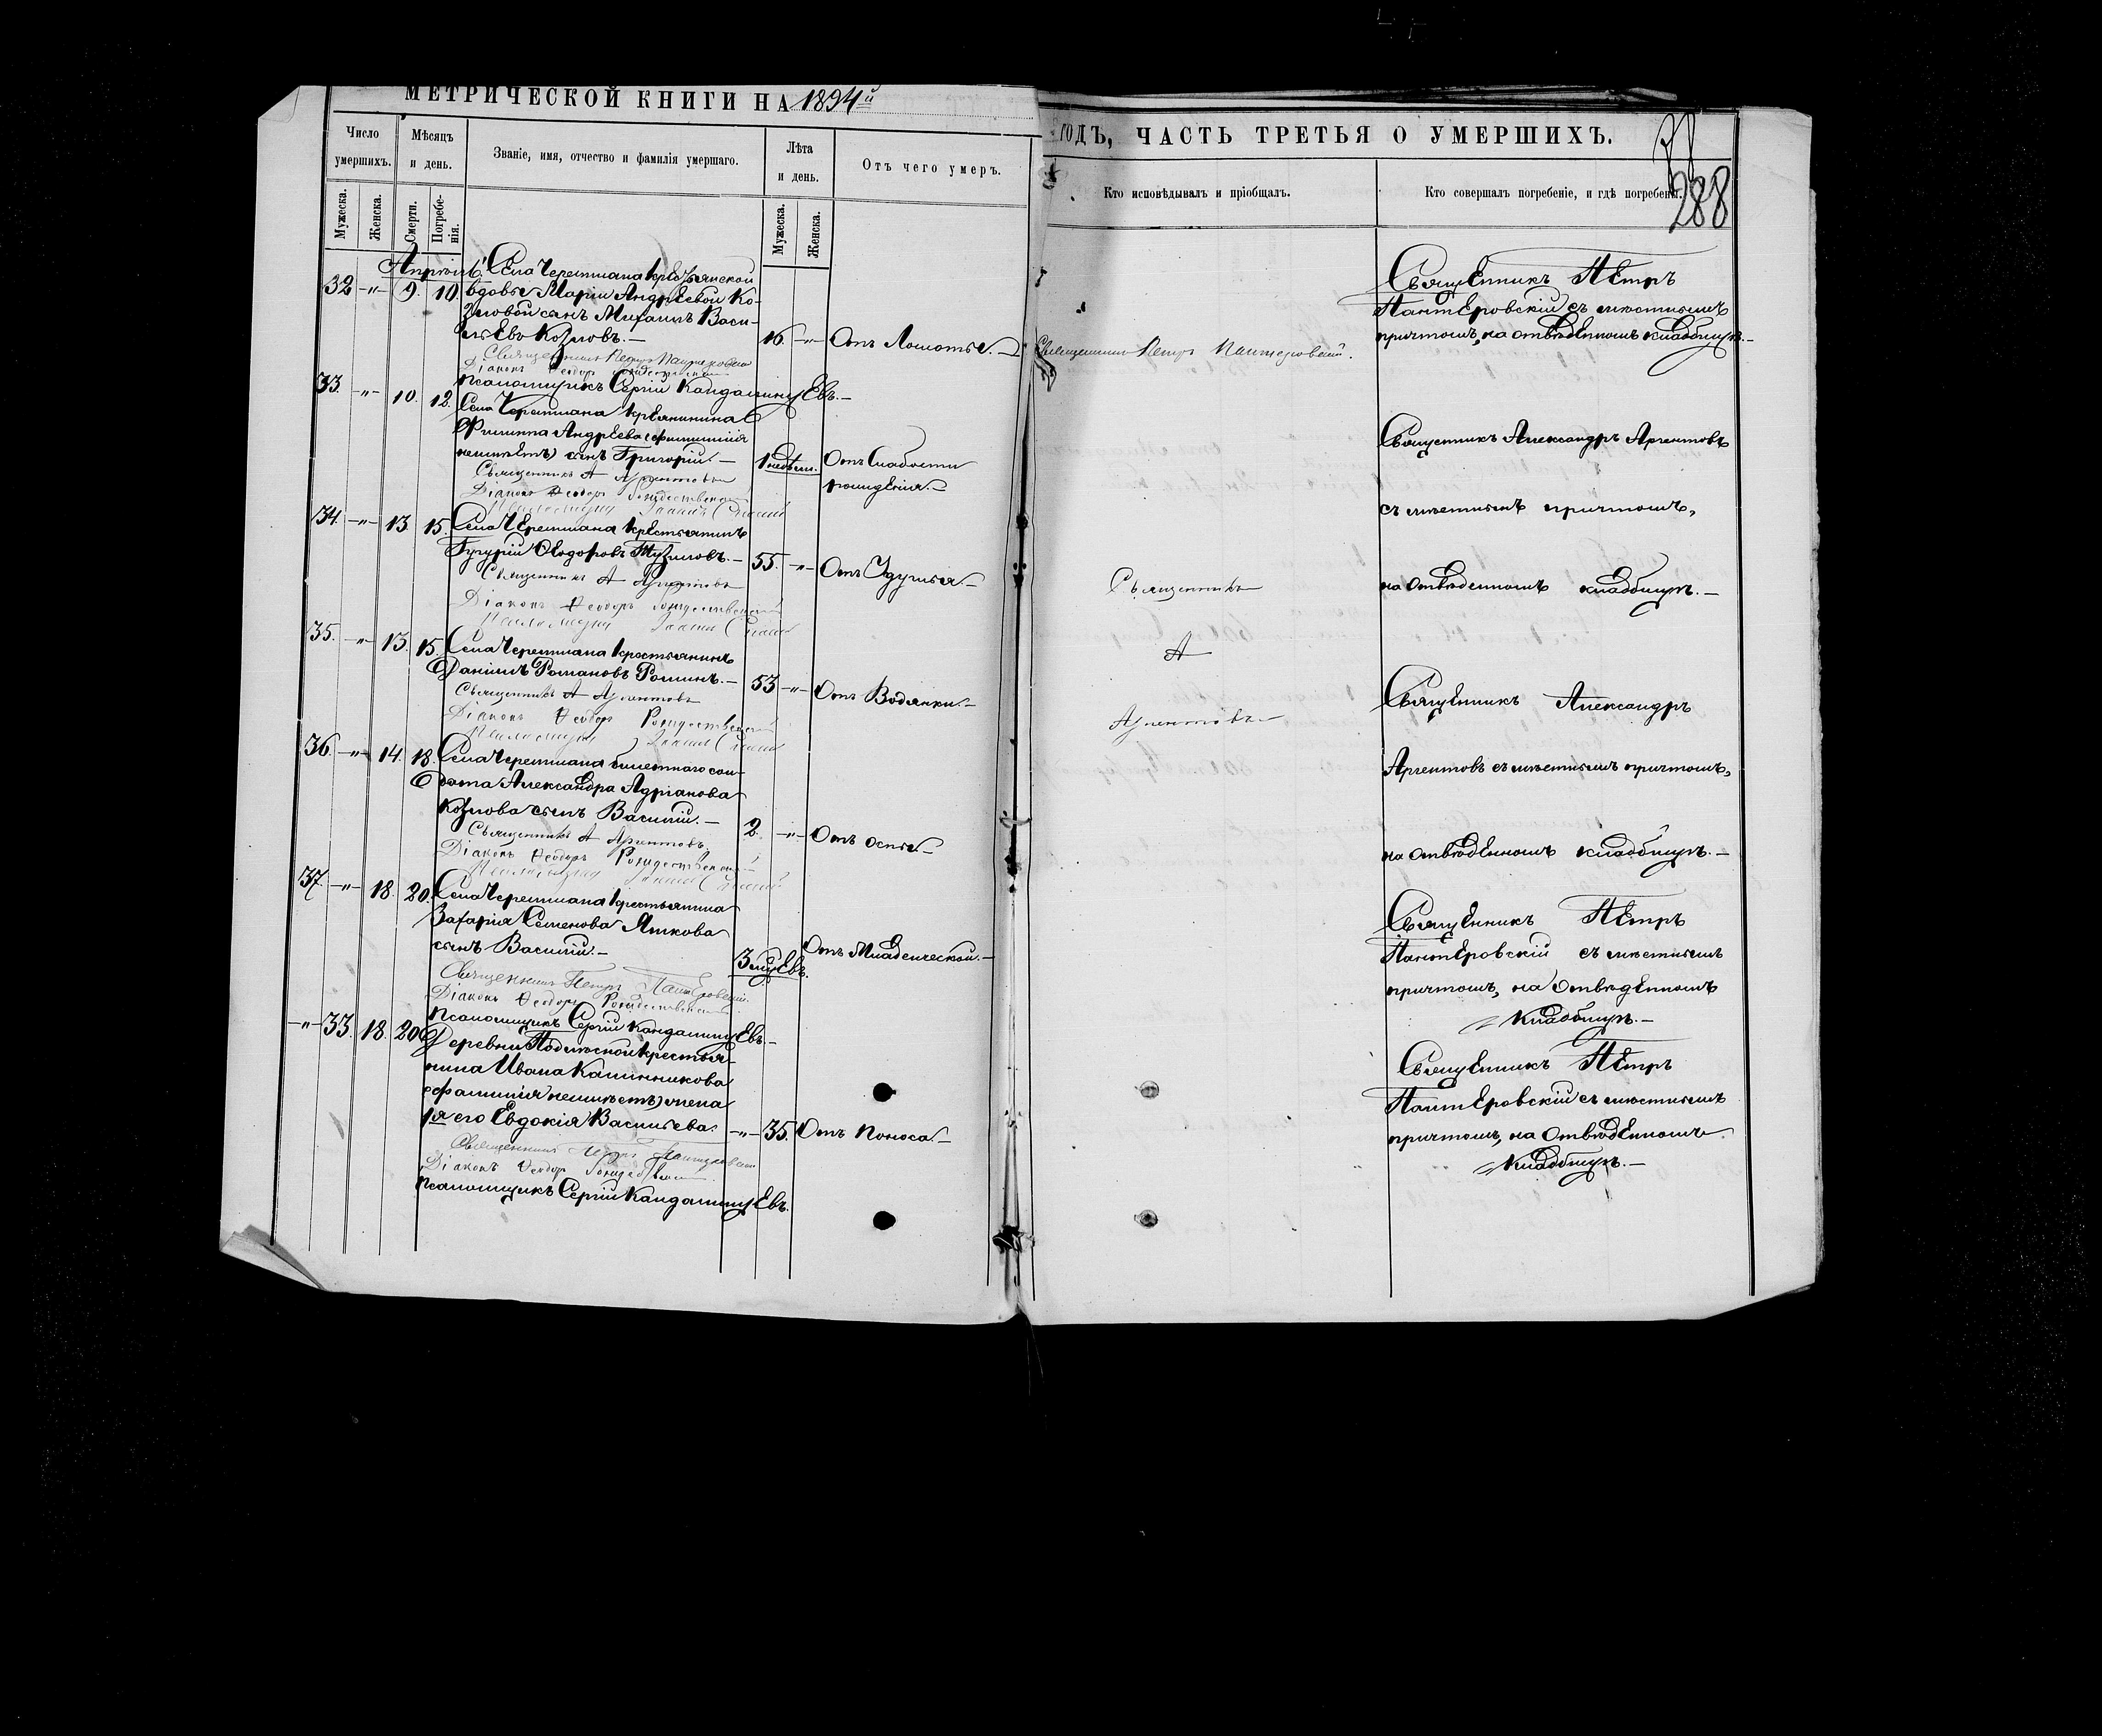 МЕТРИЧЕСКОЙ КНИГИ НА 1894й
Число умершихъ.
Мѣсяцъ и день.
Званіе, имя, отчество и фамилія умершаго.
Лѣта и день.
Отъ чего умеръ.
Мужеска.
Женска.
Смерти.
Погребенія.
Мужеска.
Женска.
Апрѣль
32 -"- 9. 10. Села Черемшана крестьянской
вдовы Маріи Андреевой Ко-
зловой сынъ Михаилъ Васи-
льевъ Козловъ.- 16. -"- Отъ Ломоты.-
Священникъ Петръ Пантеровскій
Діаконъ Ѳеодоръ Рождественскій
Псаломщикъ Сергій Кандалинцевъ.-
33. -"- 10. 12. Села Черемшана крестьянина
Филиппа Андреева (фамиліи
неимѣетъ) сынъ Григорій.- 1 недѣли. Отъ Слабости
рожденія.-
Священникъ А Аргентовъ
Діаконъ Ѳеодоръ Рождественскій
Псаломщикъ Іоаннъ
34. -"- 13. 15. Села Черемшана крестьянинъ
Гурій Ѳеодоровъ 55. -"- Отъ Удушья.-
Священникъ А Аргентовъ
Діаконъ Ѳеодоръ Рождественскій
Псаломщикъ Іоаннъ
35. -"- 13. 15. Села Черемшана крестьянинъ
Даніилъ Романовъ Роминъ.- 53 -"- Отъ Водянки.-
Священникъ А Аргентовъ
Діаконъ Ѳеодоръ Рождественскій
Псаломщикъ Іоаннъ
36. -"- 14. 18. Села Черемшана билетнаго сол-
дата Александра Адріанова
Козлова сынъ Василій.- 2. -"- Отъ оспы.-
Священникъ А Аргентовъ
Діаконъ Ѳеодоръ Рождественскій
Псаломщикъ Іоаннъ
37. -"- 18. 20. Села Черемшана крестьянина
Захарія Семенова Яшкова
сынъ Василій.- 3 мцевъ. Отъ Младенческой.-
Священникъ Петръ Пантеровскій
Діаконъ Ѳеодоръ Рождественскій
Псаломщикъ Сергій Кандалинцевъ.-
-"- 33. 18. 20. Деревни Подлѣсной крестья-
нина Ивана Калинникова
(фамиліи неимѣетъ) жена
1я его Евдокія Васильева. -"- 35. Отъ Поноса.-
Священникъ Петръ Пантеровскій
Діаконъ Ѳеодоръ Рождественскій
Псаломщикъ Сергій Кандалинцевъ.
ГОДЪ, ЧАСТЬ ТРЕТЬЯ О УМЕРШИХЪ.
288
Кто исповѣдывалъ и пріобщалъ.
Кто совершалъ погребеніе, и гдѣ погребены.
Священникъ Петръ Пантеровскій.
Священникъ
А
Аргентовъ
Священникъ Петръ
Пантеровскій съ мѣстнымъ
причтомъ, на отведенномъ кладбищѣ.-
Священникъ Александръ Аргентовъ
съ мѣстнымъ причтомъ,
на отведенномъ кладбищѣ.-
Священникъ Александръ
Аргентовъ съ мѣстнымъ причтомъ,
на отведенномъ кладбищѣ.-
Священникъ Петръ
Пантеровскій съ мѣстнымъ
причтомъ, на отведенномъ
кладбищѣ.-
Священникъ Петръ
Пантеровскій съ мѣстнымъ
причтомъ, на отведенномъ
кладбищѣ.-